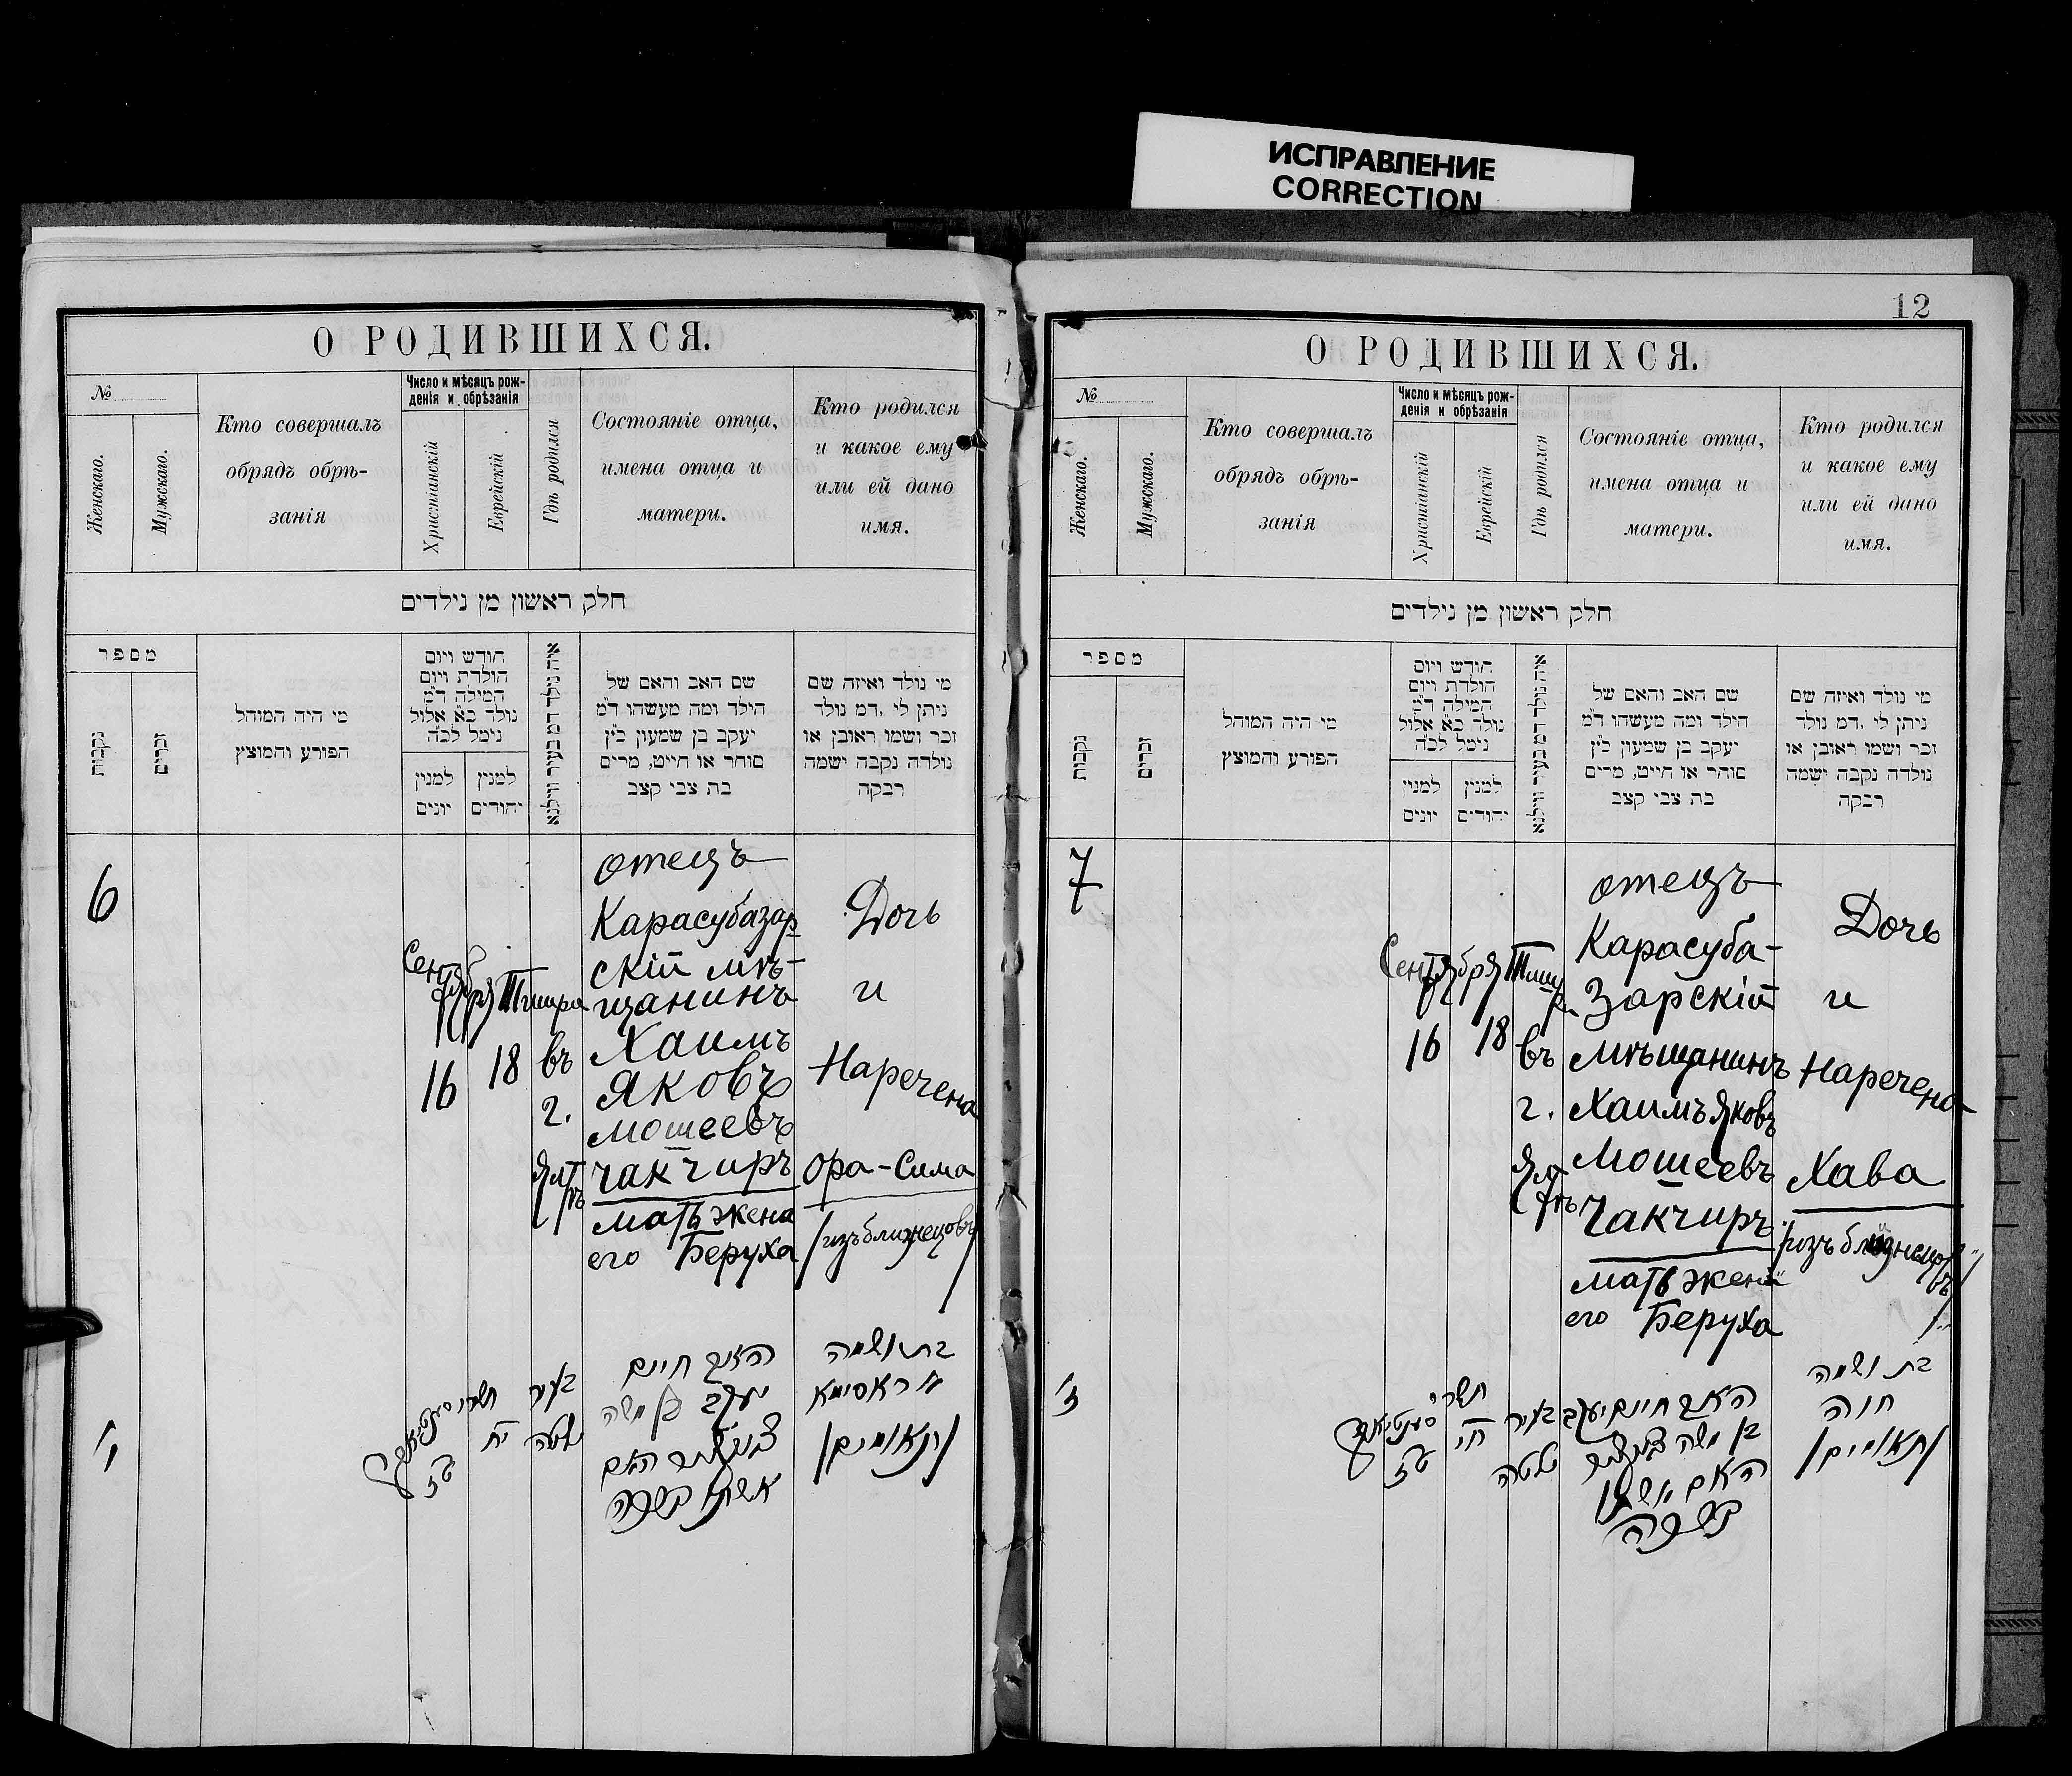 ИСПРАВЛЕНИЕ
CORRECTION
О РОДИВШИХСЯ.
№
Женскаго.
Мужскаго.
Кто совершалъ
обрядъ обрѣ-
занія
Число и мѣсяцъ рож-
денія и обрѣзанія
Христіанскій
Еврейскій
Гдѣ родился
Состояніе отца,
имена отца и
матери.
Кто родился
и какое ему
или ей дано
имя.
חלק ראשון מן נילדים
מספר
נקבות
זכרים
מי היה המוהל
הפורע והמוצץ
חודש ויום
הולדת ויום
המילה ד"מ
נולד כ"א אלול
נימל לכ"ה
למנין
יונים
למנין
יהודים
איה נולד ד"מ בעיר ווילנא
שם האב והאם של
הילד ומה מעשהו ד"מ
יעקב בן שמעון כ"ץ
סוחר או חייט, מרים
בת צבי קצב
מי נולד ואיזה שם
ניתן לי, ד"מ נולד
זכר ושמו ראובן או
נולדה נקבה ישמה
רבקה
6
Сентября
16
Тишри
18
въ
г.
Ялтѣ
отецъ
Карасубазар
скій мѣ-
щанинъ
Хаимъ
Яковъ
Мошеевъ
Чакчиръ
мать жена
его Беруха
Дочь
и
Наречена
Ора-Сима
/изъ близнецовъ/
ו'
טז
תשרי
יח
בעיר
יאלטה
האב חיים
יעקב בן משה
האם
אשתו
בת ושמה
אראסימא
/תאומים/
12
О РОДИВШИХСЯ.
№
Женскаго.
Мужскаго.
Кто совершалъ
обрядъ обрѣ-
занія
Число и мѣсяцъ рож-
денія и обрѣзанія
Христіанскій
Еврейскій
Гдѣ родился
Состояніе отца,
имена отца и
матери.
Кто родился
и какое ему
или ей дано
имя.
חלק ראשון מן נילדים
מספר
נקבות
זכרים
מי היה המוהל
הפורע והמוצץ
חודש ויום
הולדת ויום
המילה ד"מ
נולד כ"א אלול
נימל לכ"ה
למנין
יונים
למנין
יהודים
איה נולד ד"מ בעיר ווילנא
שם האב והאם של
הילד ומה מעשהו ד"מ
יעקב בן שמעון כ"ץ
סוחר או חייט, מרים
בת צבי קצב
מי נולד ואיזה שם
ניתן לי, ד"מ נולד
זכר ושמו ראובן או
נולדה נקבה ישמה
רבקה
7
Сентября
16
Тишри
18
въ
г.
Ялтѣ
отецъ
Карасуба-
зарскій
мѣщанинъ
Хаимъ Яковъ
Мошеевъ
Чакчиръ
мать жена
его Беруха
Дочь
и
Наречена
Хава
/изъ близнецовъ/
ז'
טז
תשרי
חי
בעיר
יאלטה
האב חיים יעקב
בן משה
האם אשתו
בת ושמה
חוה
/תאומים/